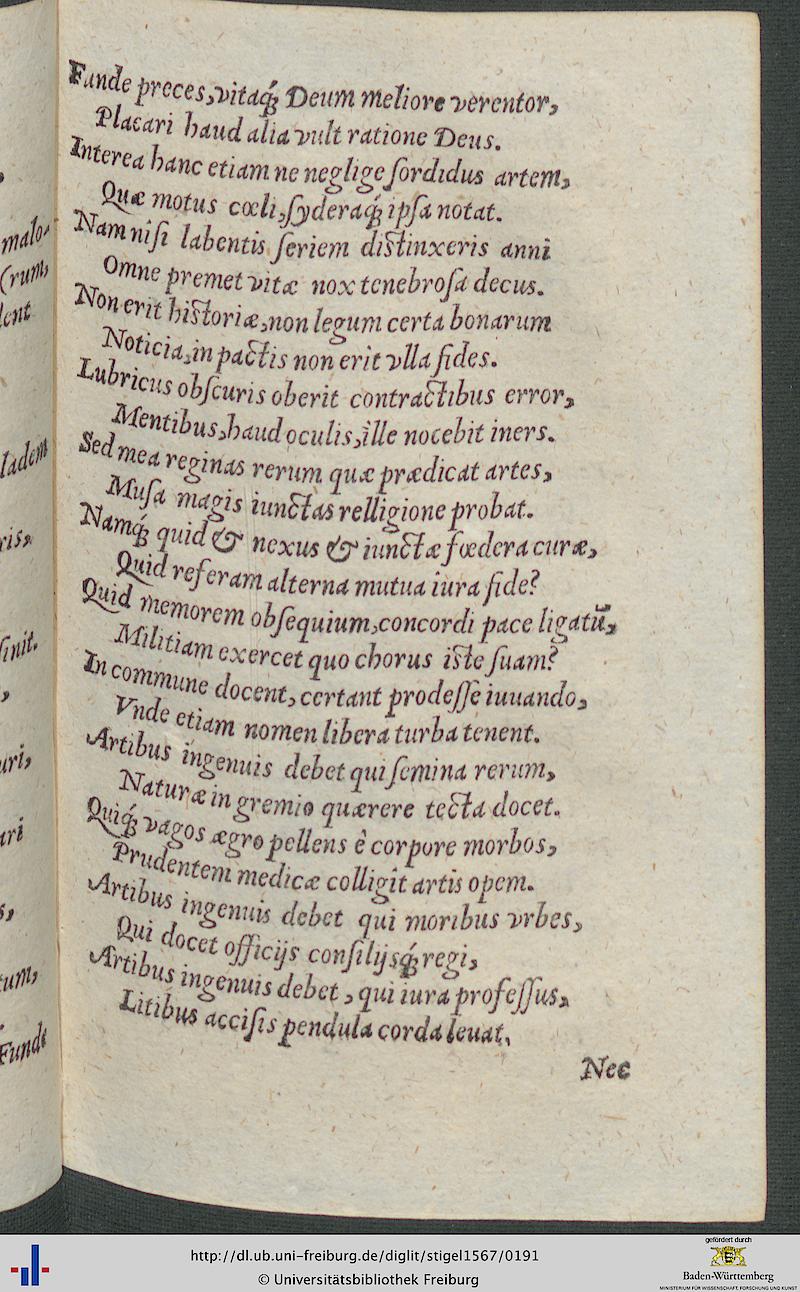 malo-
(rum,
lent
ladem
ris,
sinit.
,
uri,
uri
s,
tum,
Funde
Funde preces, vitaq́; Deum meliore verentor,
Placari haud alia vult ratione Deus.
Interea hanc etiam ne neglige sordidus artem,
Quæ motus cœli, syderaq́; ipsa notat.
Nam nisi labentis seriem distinxeris anni
Omne premet vitæ nox tenebrosa decus.
Non erit historiæ, non legum certa bonarum
Noticia, in pactis non erit vlla fides.
Lubricus obscuris oberit contractibus error,
Mentibus, haud oculis, ille nocebit iners.
Sed mea reginas rerum quæ prædicat artes,
Musa magis iunctas relligione probat.
Namq́; quid & nexus & iunctæ fœdera curæ,
Quid referam alterna mutua iura fide?
Quid memorem obsequium, concordi pace ligatū,
Militiam exercet quo chorus iste suam?
In commune docent, certant prodesse iuuando,
Vnde etiam nomen libera turba tenent.
Artibus ingenuis debet qui semina rerum,
Naturæ in gremio quærere tecta docet.
Quiq́; vagos ægro pellens è corpore morbos,
Prudentem medicæ colligit artis opem.
Artibus ingenuis debet qui moribus vrbes,
Qui docet officijs consilijsq́; regi,
Artibus ingenuis debet, qui iura professus,
Litibus accisis pendula corda leuat,
Nec
http://dl.ub.uni-freiburg.de/diglit/stigel1567/0191
© Universitätsbibliothek Freiburg
gefördert durch
Baden-Württemberg
MINISTERIUM FÜR WISSENSCHAFT, FORSCHUNG UND KUNST